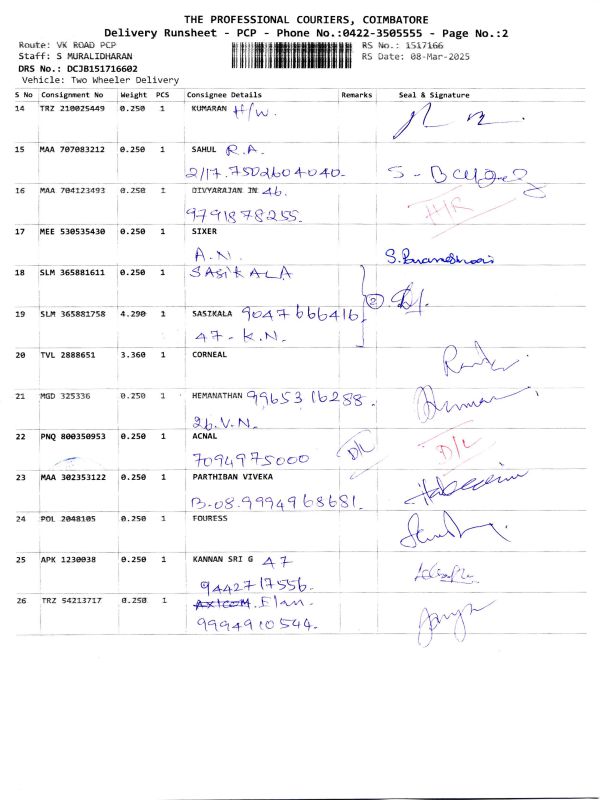 THE PROFESSIONAL COURIERS, COIMBATORE
Delivery Runsheet - PCP - Phone No.:0422-3505555 - Page No.:2
Route: VK ROAD PCP RS No.: 1517166
Staff: S MURALIDHARAN RS Date: 08-Mar-2025
DRS No.: DCJB151716602
Vehicle: Two Wheeler Delivery
S No Consignment No Weight PCS Consignee Details Remarks Seal & Signature
14 TRZ 210025449 0.250 1 KUMARAN H/W.
15 MAA 707083212 0.250 1 SAHUL R.A.
2/17.7502604040-
16 MAA 704123493 0.250 1 DIVYARAJAN IN 46. H/R
9791878255.
17 MEE 530535430 0.250 1 SIXER
A.N.
18 SLM 365881611 0.250 1 SASIKALA
19 SLM 365881758 4.290 1 SASIKALA 9047666416 2
47 - K.N.
20 TVL 2888651 3.360 1 CORNEAL
21 MGD 325336 0.250 1 HEMANATHAN 9965316288
26.V.N.
22 PNQ 800350953 0.250 1 ACNAL D/L D/L
7094975000
23 MAA 302353122 0.250 1 PARTHIBAN VIVEKA
B-08.9994968681.
24 POL 2048105 0.250 1 FOURESS
25 APK 1230038 0.250 1 KANNAN SRI G 47
9442717556.
26 TRZ 54213717 0.250 1 AXICOM Elan.
9994910544.